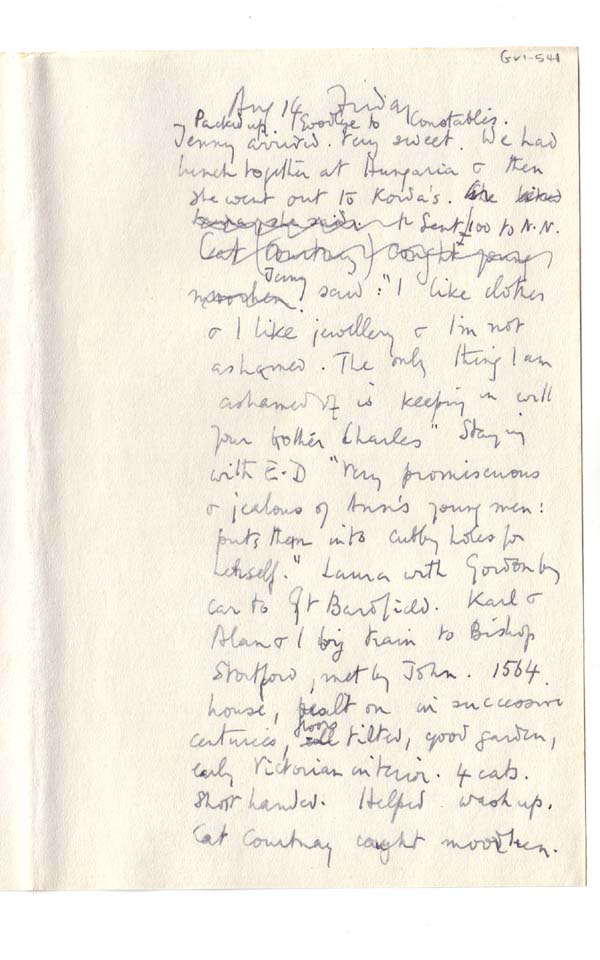 GV1-541
Aug 14 Friday
Packed up. Goodbye to Constables.
Jenny arrived. Very sweet. We had
lunch together at Hungaria & then
she went out to Korda's. She liked
Sent £100 to N.N.
Cat (Courtnay) caught young
moorhen. Jenny said: "I like clothes
& I like jewellery & I'm not
ashamed. The only thing I am
ashamed of is keeping in with
your brother Charles" Staying
with E-D "Very promiscuous
& jealous of Ann's young men:
puts them into cubby holes for
herself." Laura with Gordon by
car to Gt Bardfield. Karl &
Alan & I by train to Bishop
Stortford, met by John. 1564
house, built on in successive
centuries, floors tilted, good garden,
early Victorian interior. 4 cats.
Short handed. Helped wash up.
Cat Courtnay caught moorhen.